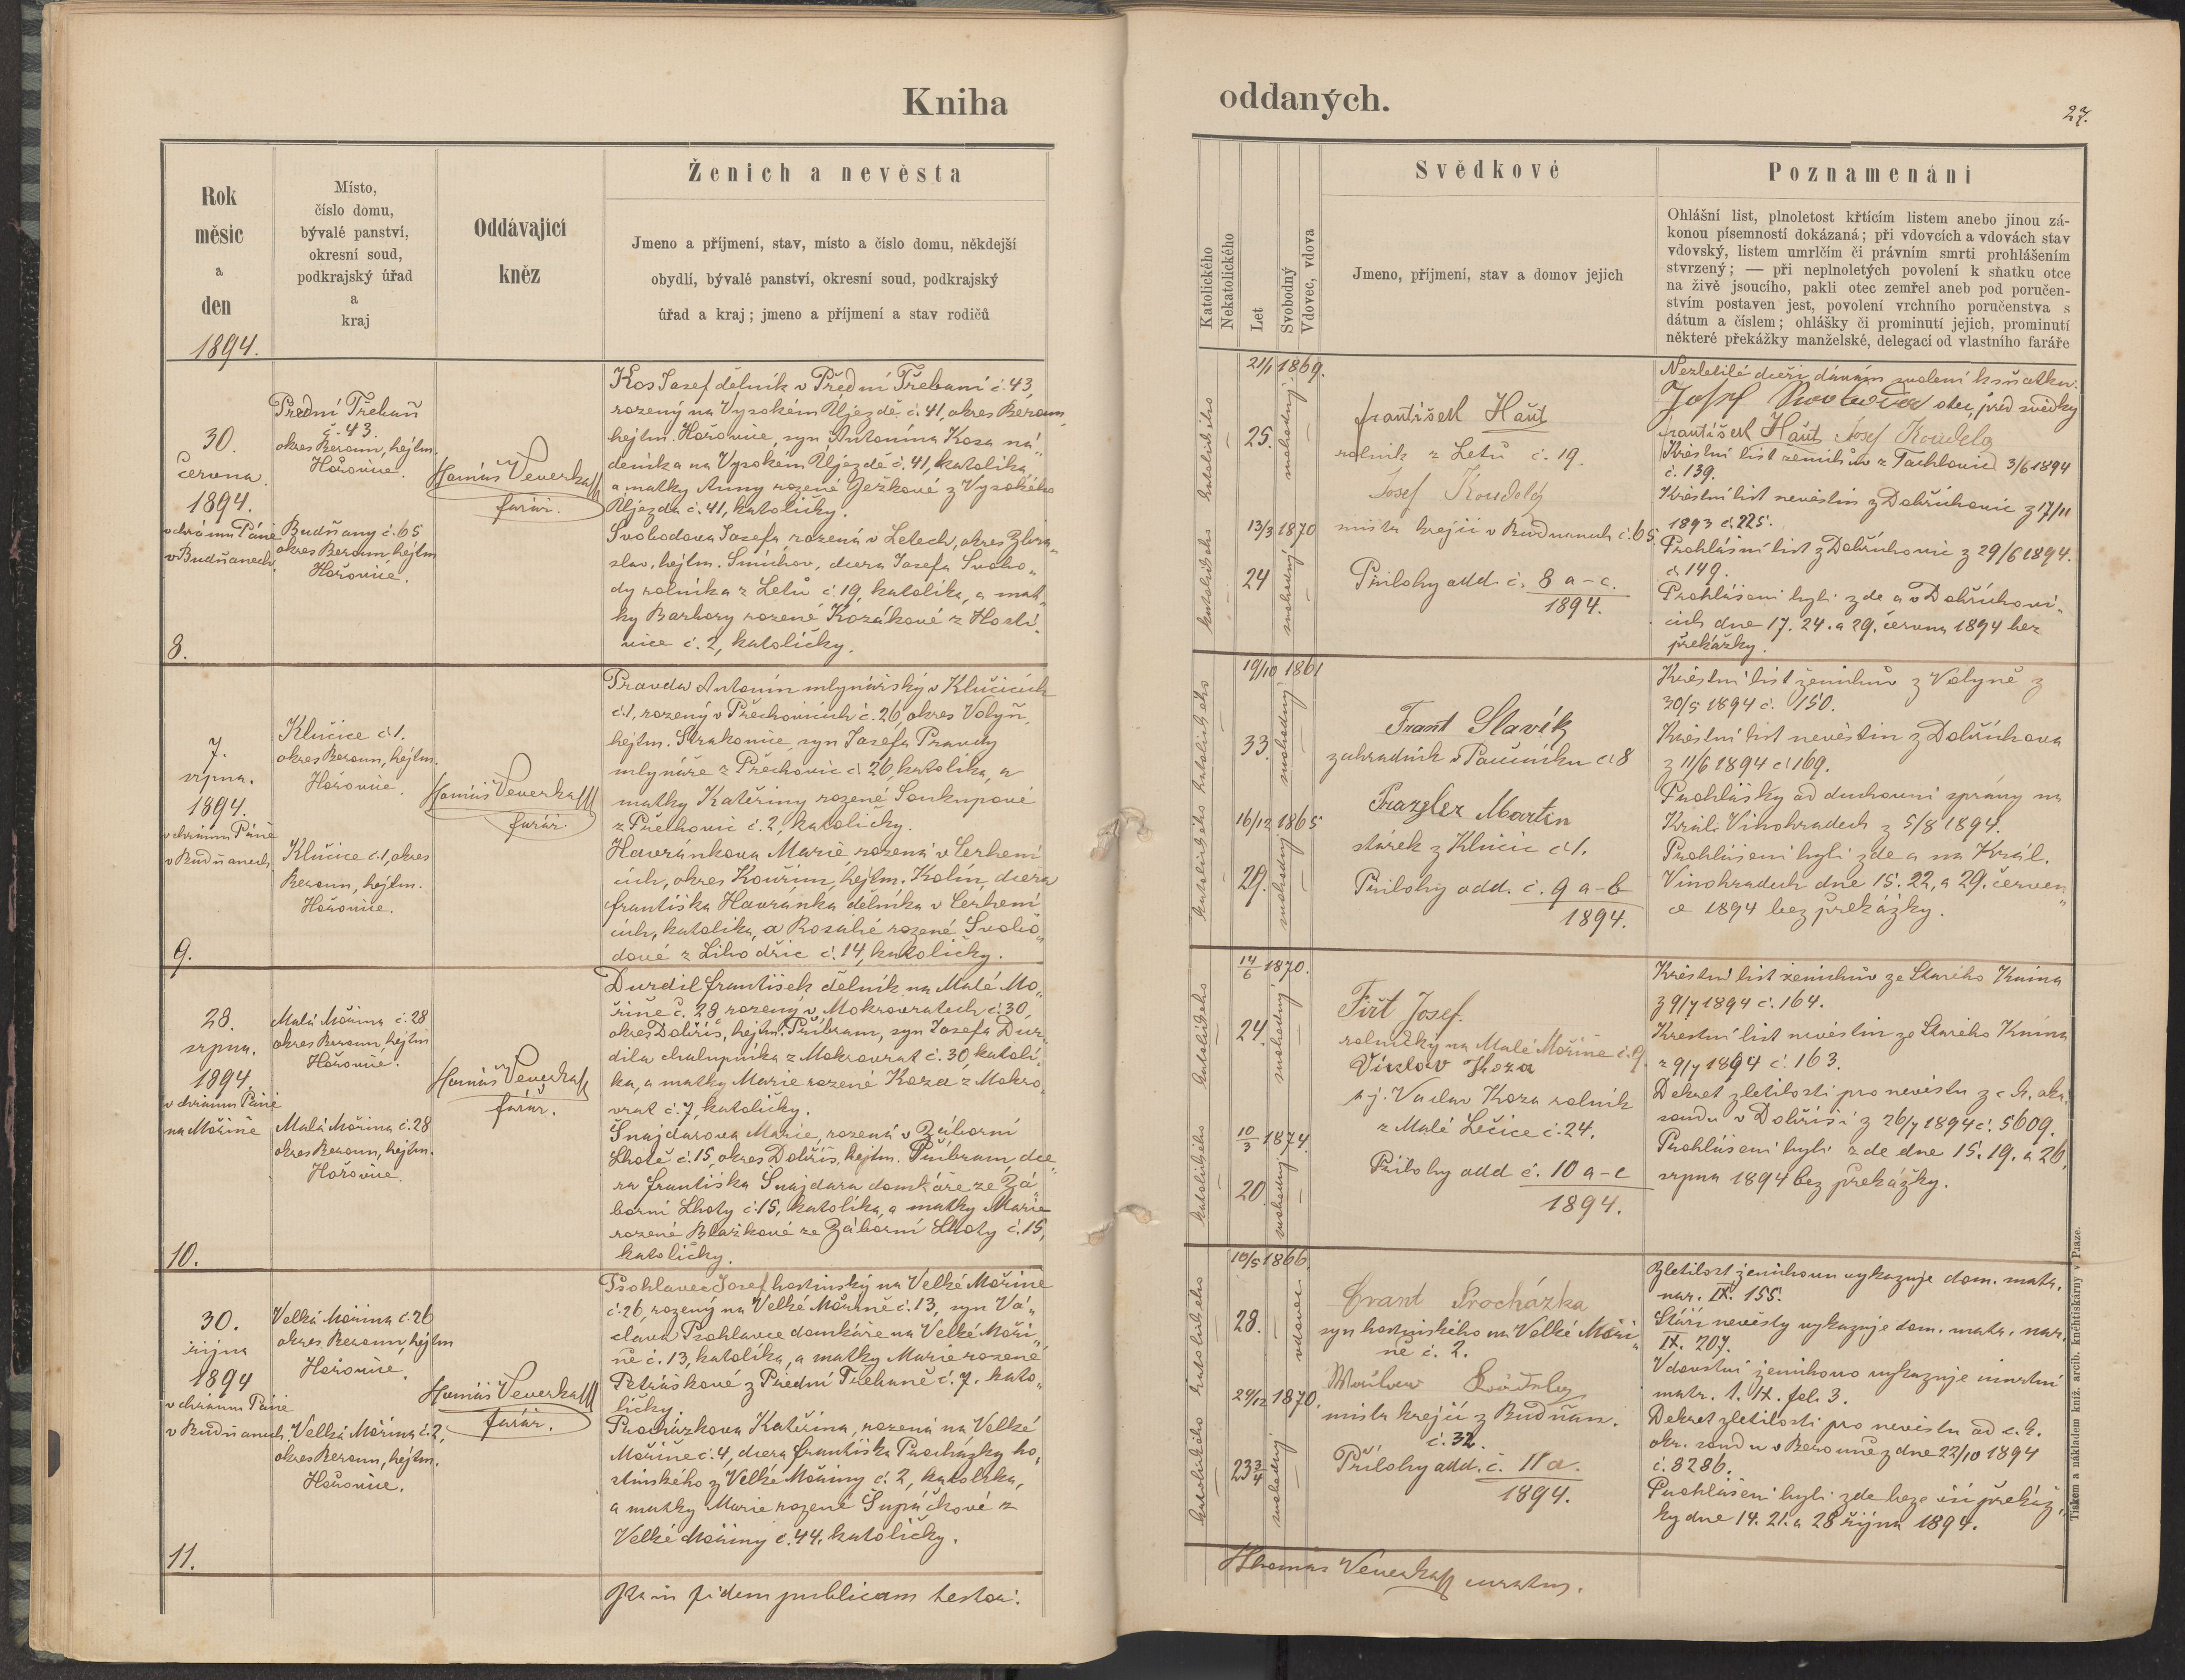 Kniha
Rok
měsíc
a
den
1894.
Místo,
číslo domu,
bývalé panství,
okresní soud,
podkrajský úřad
a
kraj
Oddávající
kněz
Ženich a nevěsta
Jmeno a příjmení, stav, místo a číslo domu, někdejší
obydlí, bývalé panství, okresní soud, podkrajský
úřad a kraj; jmeno a příjmení a stav rodičů
30.
června
1894.
v chrámu Páně
v Budňanech.
8.
Přední Třebaň
č. 43.
okres Beroun, hejtm.
Hořovice.
Budňany č. 65
okres Beroun hejtm
Hořovice.
Tomáš Veverka
farář.
Kos Josef dělník v Přední Třebani č. 43,
rozený na Vysokém Újezdě č. 41, okres Beroun,
hejtm. Hořovice, syn Antonína Kosa ná„
deníka na Vysokém Újezdě č. 41, katolíka,
a matky Anny rozené Ježkové z Vysokého
Újezda č. 41, katoličky.
Svobodova Josefa rozená v Letech, okres Zbra„
slav, hejtm. Smíchov, dcera Josefa Svobo„
dy rolníka z Letů č. 19, katolíka, a mat„
ky Barbory rozené Kozákové z Hosti„
nice č. 2, katoličky.
7.
srpna.
1894.
v chrámu Páně
v Budňanech
9.
Klučice č 1.
okres Beroun, hejtm.
Hořovice.
Klučice č. 1, okres
Beroun, hejtm.
Hořovice.
Tomáš Veverka
farář.
Pravda Antonín mlynářský v Klučicích
č. 1, rozený v Přechovicích č. 26, okres Volyň,
hejtm. Strakonice, syn Josefa Pravdy
mlynáře z Přechovic č 26, katolíka, a
matky Kateřiny rozené Soukupové
z Přechovic č. 2, katoličky.
Havránkova Marie, rozená v Cerheni
cích, okres Kouřim, hejtm. Kolín, dcera
františka Havránka dělníka v Cerheni
cích, katolíka, a Rosalie rozené Svobo„
dové z Libodřic č. 14, katoličky.
28.
srpna.
1894.
v chrámu Páně
na Mořině
10.
Malá Mořina č. 28
okres Beroun, hejtm
Hořovice.
Malá Mořina č. 28
okres Beroun, hejtm.
Hořovice.
Tomáš Veverka
farář.
Durdil františek dělník na Malé Mo„
řině č. 28, rozený v Mokrovratech č. 30,
okres Dobříš, hejtm. Příbram, syn Josefa Dur„
dila chalupníka z Mokrovrat č. 30, katolí„
ka, a matky Marie rozené Koza z Mokro„
vrat č. 7, katoličky.
Šnajdarova Marie, rozená v Záborní
Lhotě č. 15, okres Dobříš, hejtm. Příbram, dce„
ra františka Šnajdara domkáře ze Zá„
borní Lhoty č. 15, katolíka, a matky Marie
rozené Blažkové ze Záborní Lhoty č. 15,
katoličky.
30.
října
1894
v chrámu Páně
v Budňanech.
11.
Velká Mořina č. 26
okres Beroun, hejtm
Hořovice.
Velká Mořina č. 2,
okres Beroun, hejtm.
Hořovice.
Tomáš Veverka
farář.
Psohlavec Josef hostinský na Velké Mořině
č. 26, rozený na Velké Mořině č. 13, syn Vá„
clava Psohlavce domkáře na Velké Moři„
ně č. 13, katolíka, a matky Marie rozené
Petráskové z Přední Třebaně č. 7. kato„
ličky.
Procházkova Kateřina, rozená na Velké
Mořině č. 4, dcera františka Procházky ho„
stinského z Velké Mořiny č. 2, katolíka,
a matky Marie rozené Šupáčkové z
Velké Mořiny č. 44, katoličky.
Ita in fidem publicam testor:
oddaných.
27.
Katolického
Nekatolického
Let
Svobodný
Vdovec, vdova
Svědkové
Jmeno, příjmení, stav a domov jejich
Poznamenání
Ohlášní list, plnoletost křtícím listem anebo jinou zá-
konou písemností dokázaná; při vdovcích a vdovách stav
vdovský, listem umrlčím či právním smrti prohlášením
stvrzený; — při neplnoletých povolení k sňatku otce
na živě jsoucího, pakli otec zemřel aneb pod poručen-
stvím postaven jest, povolení vrchního poručenstva s
dátum a číslem; ohlášky či prominutí jejich, prominutí
některé překážky manželské, delegací od vlastního faráře
katolického
katolického
21/1 1869.
25.
svobodný
13/3 1870
24
svobodný
františek Haut
rolník z Letů č. 19.
Josef Koudela
mistr krejčí v Budnanech č. 65.
Přílohy odd. č. 8 a-c.
1894.
Nezletilé dceři dávám svolení k sňatku.
Josef Svoboda otec, před svědky
františek Haut Josef Koudela
Křestní list ženichův z Tachlovic 3/6 1894
č. 139.
Křestní list nevěstin z Dobřichovic z 17/11
1893 č. 225.
Prohlášní list z Dobřichovic z 29/6 1894.
č 149.
Prohlášeni byli zde a v Dobřichovi„
cích dne 17. 24. a 29. června 1894 bez
překážky.
katolického
katolického
19/10 1861
33.
svobodný
16/12 1865
29.
svobodný
Frant Slavík
zahradník v Poučníku č 8
Prazgler Martin
stárek z Klučic č 1.
Přílohy odd. č. 9 a-b
1894.
Křestní list ženichův z Volyně z
30/5 1894 č. 150.
Křestní list nevěstin z Dobřichova
z 11/6 1894 č 169.
Prohlášky od duchovní správy na
Král. Vinohradech z 5/8 1894.
Prohlášeni byli zde a na Král.
Vinohradech dne 15. 22. a 29. červen„
ce 1894 bez překážky.
katolického
katolického
14/6 1870.
24.
svobodný
10/3 1874.
20.
svobodný
Firt Josef.
rolnický na Malé Mořině č. 9.
Václav Koza
t. j. Vaclav Koza rolník
z Malé Lečice č. 24.
Přílohy odd č. 10 a-c
1894.
Křestní list ženichův ze Starého Knína
z 9/7 1894 č. 164.
Krestní list nevěstin ze Starého Knína
z 9/7 1894 č. 163.
Dekret zletilosti pro nevěstu z c. k. okr.
soudu v Dobříši z 26/7 1894 č. 5609.
Prohlášeni byli zde dne 15. 19. a 26.
srpna 1894 bez překážky.
katolického
katolického
10/5 1866.
28.
vdovec
24/12 1870.
23 3/4
svobodný
Frant Procházka
syn hostinského na Velké Moři„
ně č. 2.
mistr krejčí z Budňan.
č. 32.
Přílohy odd. č. 11 a.
1894.
Zletilost ženichovu vykazuje dom. matr.
nar. IX. 155.
Stáří nevěsty vykazuje dom. matr. nar.
IX. 207.
Vdovství ženichovo vykazuje úmrtní
matr. 1. IX. fol. 3.
Dekret zletilosti pro nevěstu od c. k.
okr. soudu v Berouně z dne 22/10 1894
č. 8286.
Prohlášeni byli zde beze vší překáž„
ky dne 14. 21. a 28 října 1894.
Thomas Veverka curatus.
Tiskem a nákladem kníž. arcib. knihtiskárny v Praze.